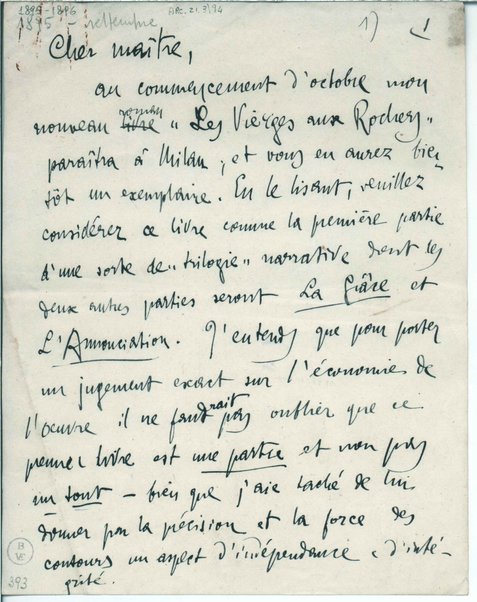 1895-1896
ARC. 21. 9/94
1895 - settembre
1)
1
Cher maître,
au commencement d'octobre mon
nouveau livre roman « Les Vierges aux Rochers »
paraîtra à Milan ; et vous en aurez bien
tôt un exemplaire. En le lisant, veuillez
considérez ce livre comme la première partie
d'une sorte de « trilogie » narrative dont les
deux autres parties seront La Grâce et
L'Annonciation. J'entends que pour porter
un jugement exact sur l'économies de
l'oeuvre il ne faudrait pas oublier que ce
premier livre est une partie et non pas
un tout – bien que j'aie taché de lui
donner par la précision et la force des
contours un aspect d'indépendance e d'inté-
grité.
B
VE
393